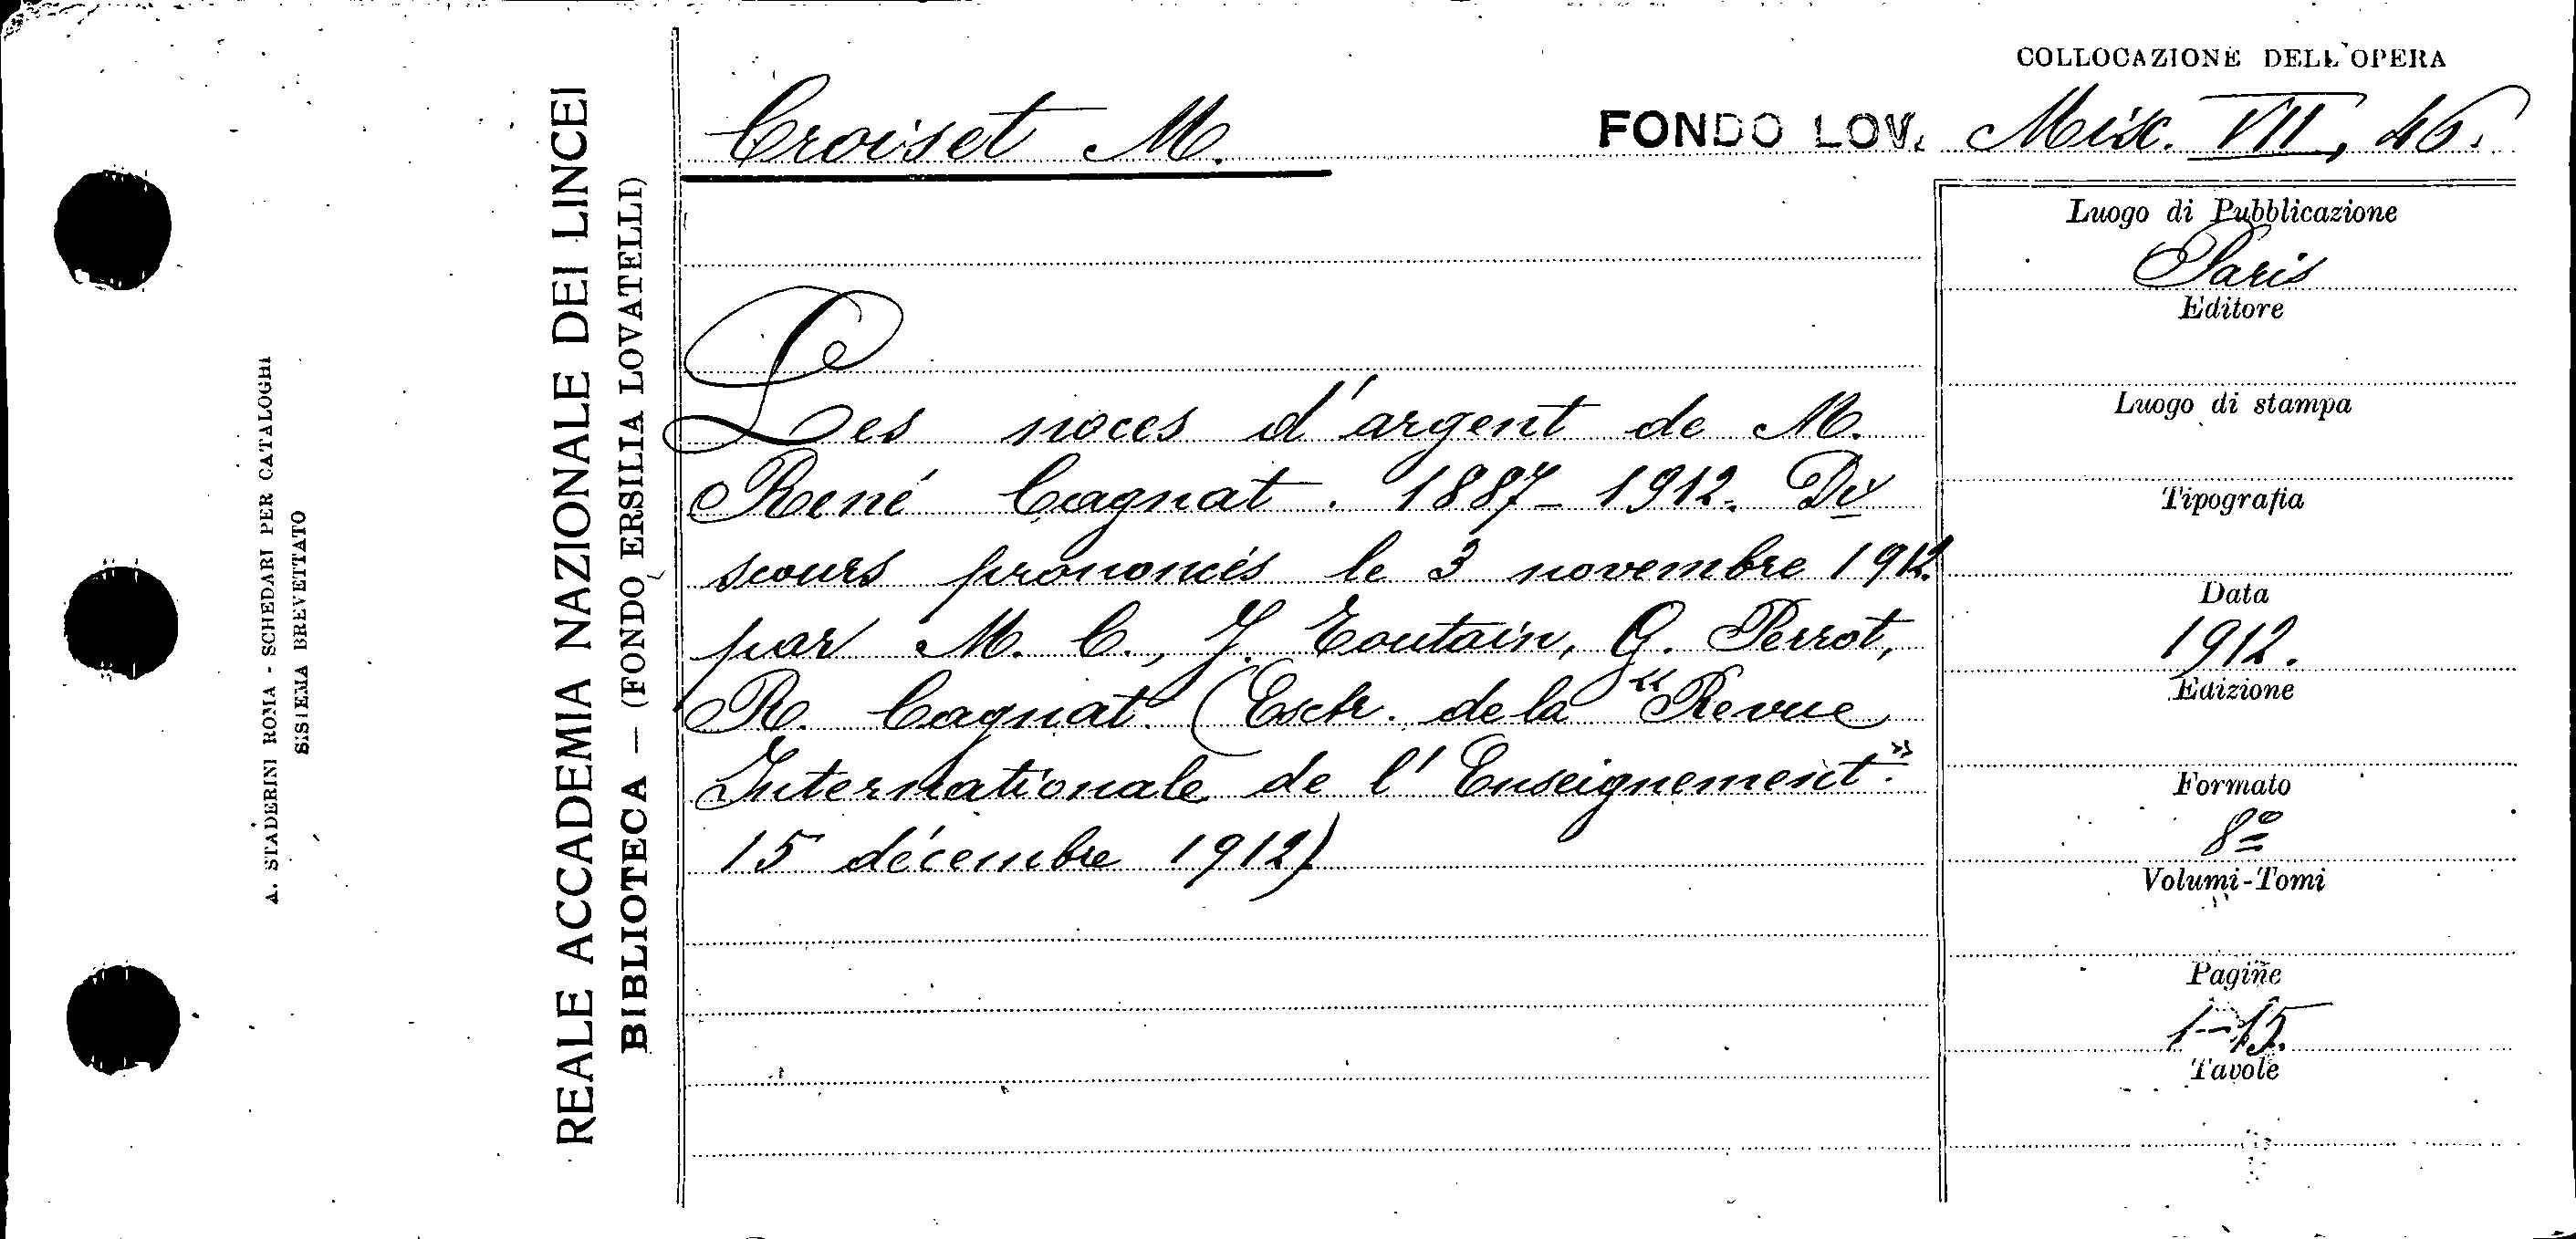 A. STADERINI ROMA - SCHEDARI PER CATALOGHI
SISTEMA BREVETTATO
REALE ACCADEMIA NAZIONALE DEI LINCEI
BIBLIOTECA — (FONDO ERSILIA LOVATELLI)
COLLOCAZIONE DELL'OPERA
Croiset M.
FONDO LOV. Misc. VII, 46.
Les noces d'argent de M.
René Cagnat. 1887-1912. Di
scours prononcés le 3 novembre 1912.
par M. C., J. Toutain, G. Perrot,
R. Cagnat. (Extr. de la "Revue
Internationale de l'Enseignement."
15 décembre 1912)
Luogo di Pubblicazione
Paris
Editore
Luogo di stampa
Tipografia
Data
1912.
Edizione
Formato
8º
Volumi-Tomi
Pagine
1-15.
Tavole